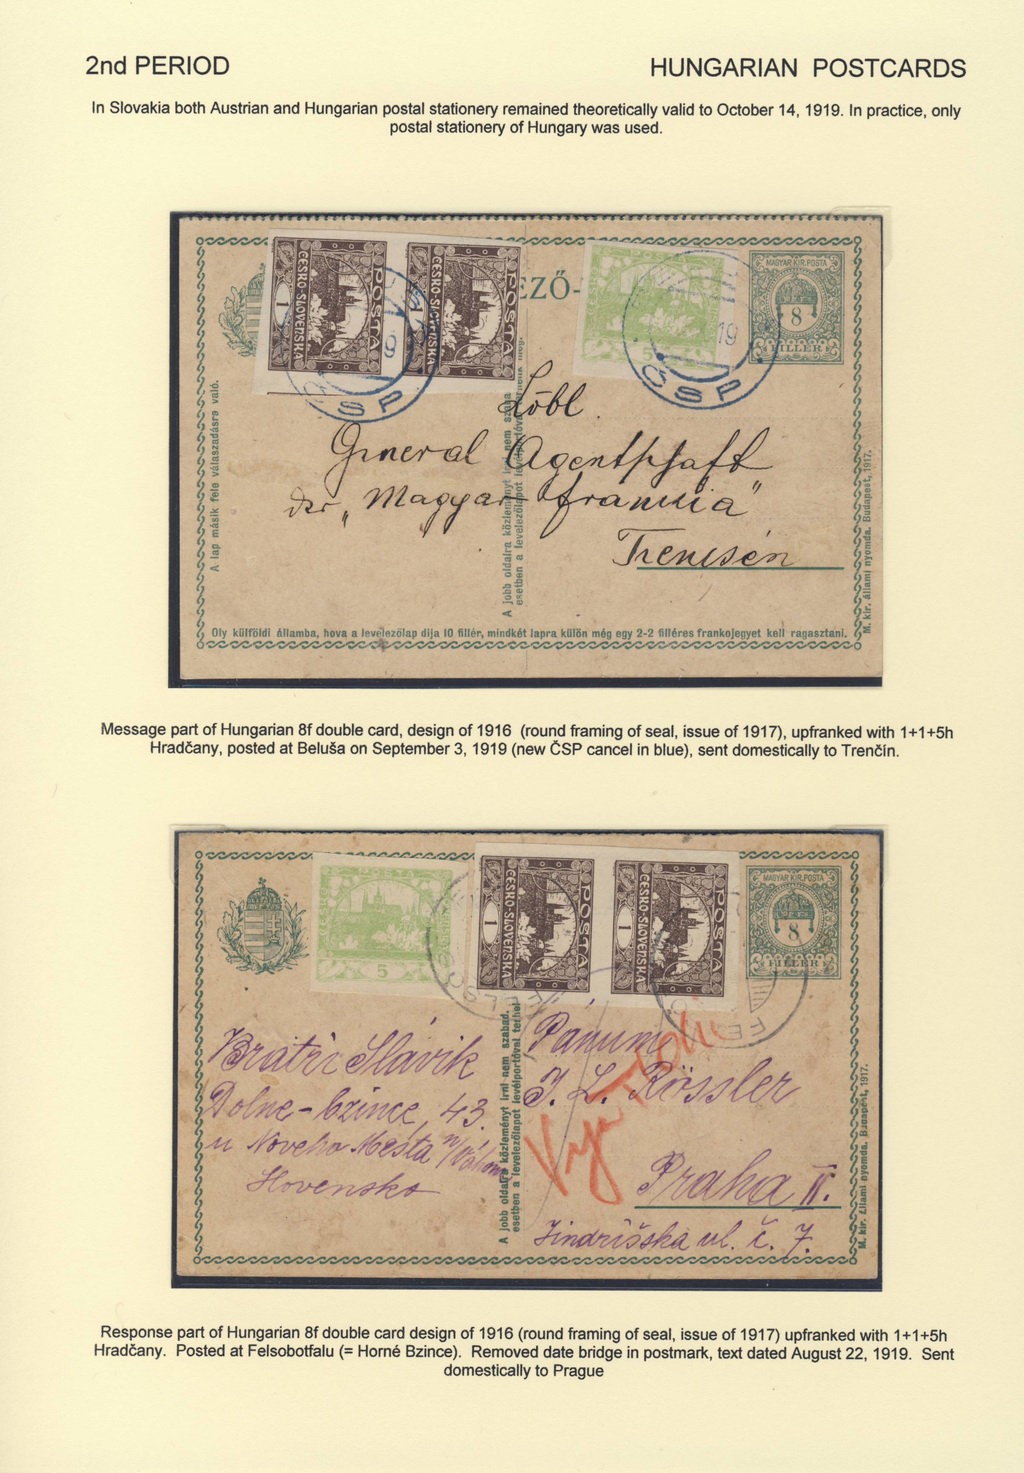 2nd PERIOD
HUNGARIAN POSTCARDS
In Slovakia both Austrian and Hungarian postal stationery remained theoretically valid to October 14, 1919. In practice, only
postal stationery of Hungary was used.
POSTA
ČESKO-SLOVENSKÁ
1
POSTA
ČESKO-SLOVENSKÁ
EZŐ-
5
19
MAGYAR KIR. POSTA
8
FILLÉR
ČSP
ČSP
A lap másik fele válaszadásra való.
A jobb oldalra közleményt irni nem
esetben a levelezőlapot
M. kir. állami nyomda. Budapest, 1917.
Löbl
General Agentschaft
der „Magyar francia"
Trencsén
Oly külföldi államba, hova a levelezőlap dija 10 fillér, mindkét lapra külön még egy 2-2 filléres frankojegyet kell ragasztani.
Message part of Hungarian 8f double card, design of 1916 (round framing of seal, issue of 1917), upfranked with 1+1+5h
Hradčany, posted at Beluša on September 3, 1919 (new ČSP cancel in blue), sent domestically to Trenčín.
5
POSTA
ČESKO-SLOVENSKÁ
1
POSTA
ČESKO-SLOVENSKÁ
1
MAGYAR KIR. POSTA
8
FILLÉR
Bratři Slávik
Dolne-bzince, 43.
u Noveho Mesta n/Váhom
Slovensko
A jobb oldalra közleményt irni nem szabad.
esetben a levelezőlapot levélportóval terhel
Pánum
J. L. Rössler
Praha II.
Jindřišská ul. č. 7.
M. kir. állami nyomda. Budapest, 1917.
Response part of Hungarian 8f double card design of 1916 (round framing of seal, issue of 1917) upfranked with 1+1+5h
Hradčany. Posted at Felsobotfalu (= Horné Bzince). Removed date bridge in postmark, text dated August 22, 1919. Sent
domestically to Prague